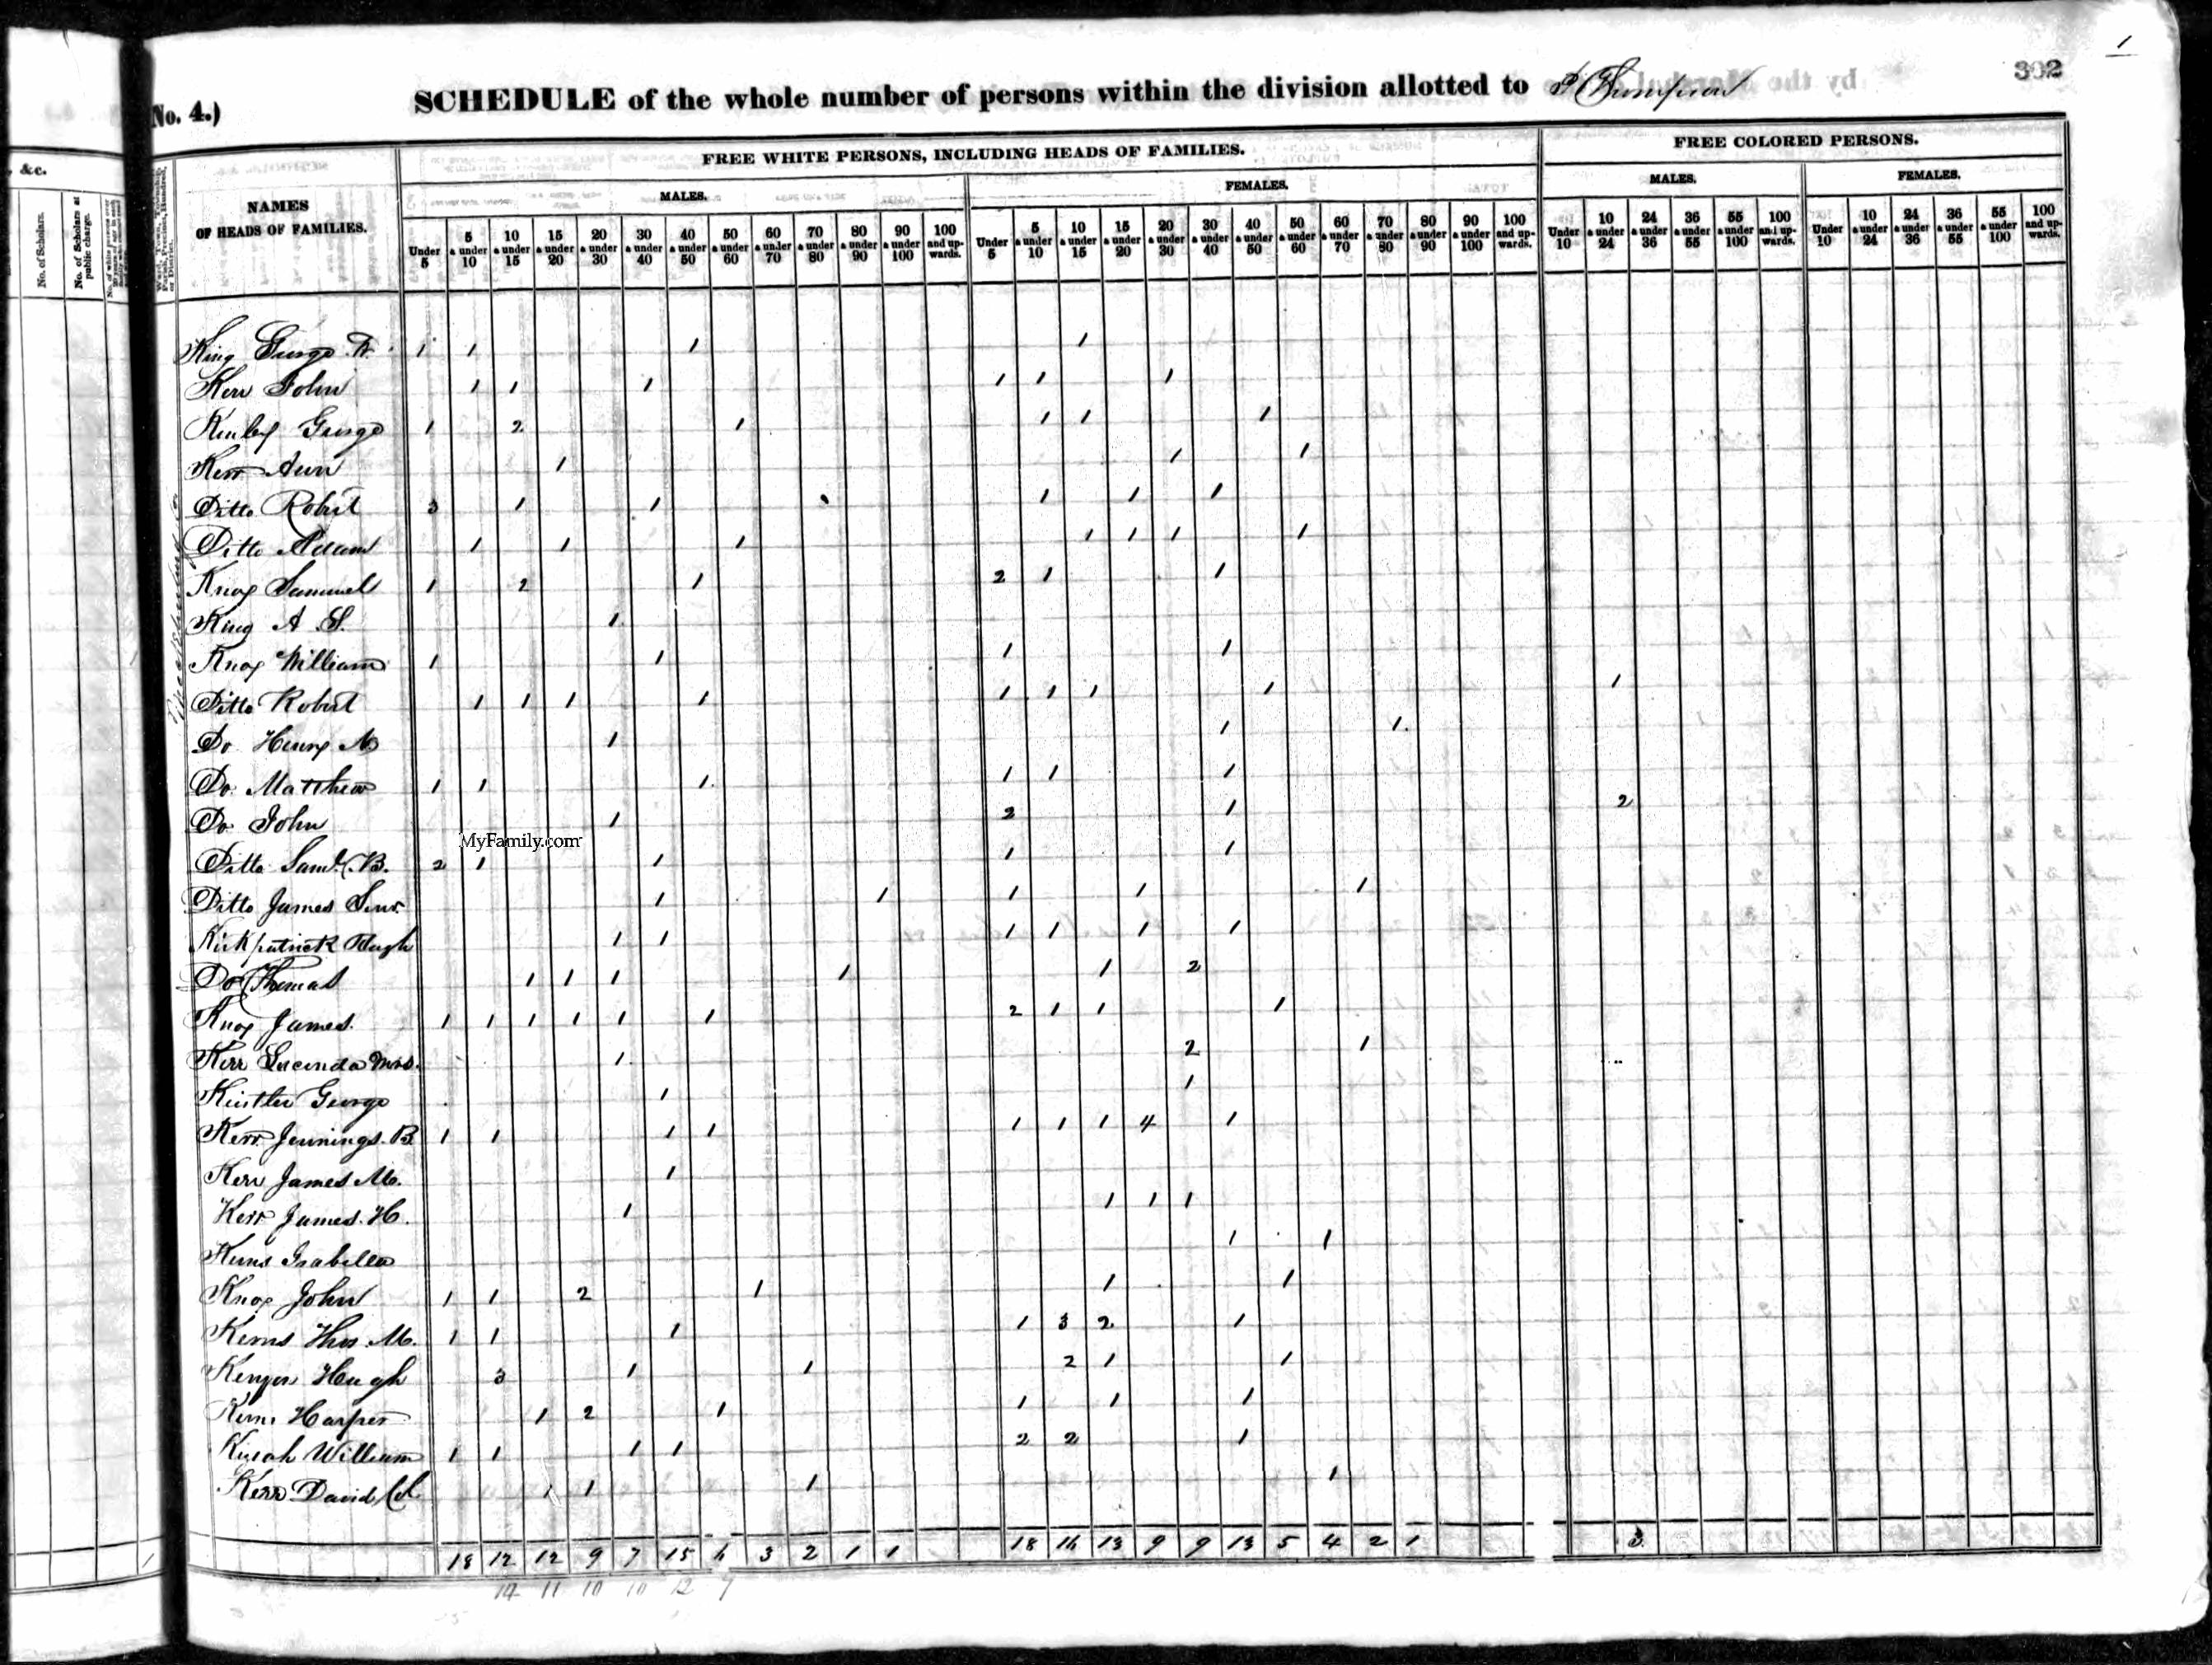 1
302
No. 4.) SCHEDULE of the whole number of persons within the division allotted to
&c.
No. of Scholars.
No. of Scholars at public charge.
NAMES OF HEADS OF FAMILIES.
FREE WHITE PERSONS, INCLUDING HEADS OF FAMILIES.
FREE COLORED PERSONS.
MALES. FEMALES. MALES. FEMALES.
Under 5 | 5 & under 10 | 10 & under 15 | 15 & under 20 | 20 & under 30 | 30 & under 40 | 40 & under 50 | 50 & under 60 | 60 & under 70 | 70 & under 80 | 80 & under 90 | 90 & under 100 | 100 and upwards.
Under 5 | 5 & under 10 | 10 & under 15 | 15 & under 20 | 20 & under 30 | 30 & under 40 | 40 & under 50 | 50 & under 60 | 60 & under 70 | 70 & under 80 | 80 & under 90 | 90 & under 100 | 100 and upwards.
Under 10 | 10 & under 24 | 24 & under 36 | 36 & under 55 | 55 & under 100 | 100 and upwards.
Under 10 | 10 & under 24 | 24 & under 36 | 36 & under 55 | 55 & under 100 | 100 and upwards.
King George 1 1 1 1
Kerr John 1 1 1 1 1 1
George 1 2 1 1 1 1
Kerr Ann 1 1 1
Ditto Robert 3 1 1 1 1 1
Ditto Adam 1 1 1 1 1 1 1
Knox Samuel 1 2 1 2 1 1
King A S. 1
Knox William 1 1 1 1
Ditto Robert 1 1 1 1 1 1 1 1 1
Do Henry 1 1 1
Do Matthew 1 1 1 1 1 1
Do John 1 2 1 2
MyFamily.com
Ditto Saml. B. 2 1 1 1 1
Ditto James Senr. 1 1 1 1 1
Kirkpatrick Hugh 1 1 1 1 1 1
Do Thomas 1 1 1 1 1 2
Knox James 1 1 1 1 1 1 2 1 1 1
Kerr Lucinda Mrs. 1 2 1
George 1 1
Kerr Jennings B 1 1 1 1 1 1 1 4 1
Kerr James M. 1
Kerr James H. 1 1 1 1
Isabella 1 1
Knox John 1 1 2 1 1 1
Kerns Thos M. 1 1 1 1 3 2 1
Hugh 3 1 1 2 1 1
Harper 1 2 1 1 1 1
William 1 1 1 1 2 2 1
Kerr David 1 1 1 1
18 12 12 9 7 15 6 3 2 1 1 18 16 13 9 9 13 5 4 2 1 3
14 11 10 10 12 7